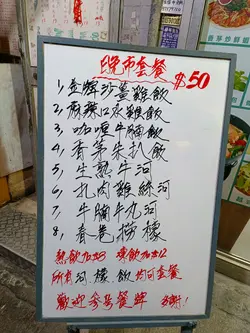 晚市套餐
$50
1, 金牌沙薑雞飯
2, 麻辣口水雞飯
3, 咖喱牛腩飯
4, 香茅朱扒飯
5, 生熟牛河
6, 扎肉雞絲河
7, 牛腩牛丸河
8, 春卷撈檬
熱飲加$8 凍飲加$12
所有河.檬.飯均可套餐
歡迎 多謝!